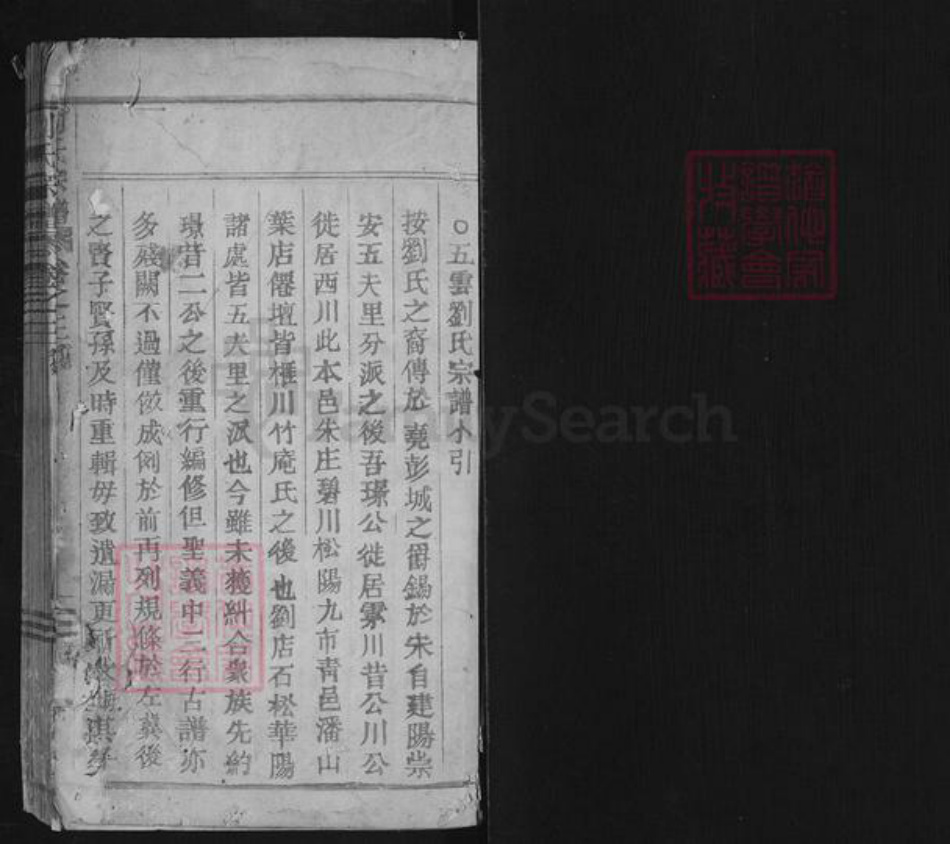 ○五雲劉氏宗譜小引
按劉氏之裔傳於堯彭城之爵錫於宋自建陽崇
安五夫里分派之後吾璟公徙居雲川昔公川公
徙居西川此本邑朱庄碧川松陽九市青邑潘山
葉店僊壇皆榧川竹庵氏之後也劉店石松華陽
諸處皆五夫里之派也今雖未獲糾合衆族先約
璟昔二公之後重行編修但聖義中三行古譜亦
多殘闕不過僅倣成例於前再列規條於左冀後
之賢子賢孫及時重輯毋致遺漏更
劉氏宗譜 卷之
FamilySearch